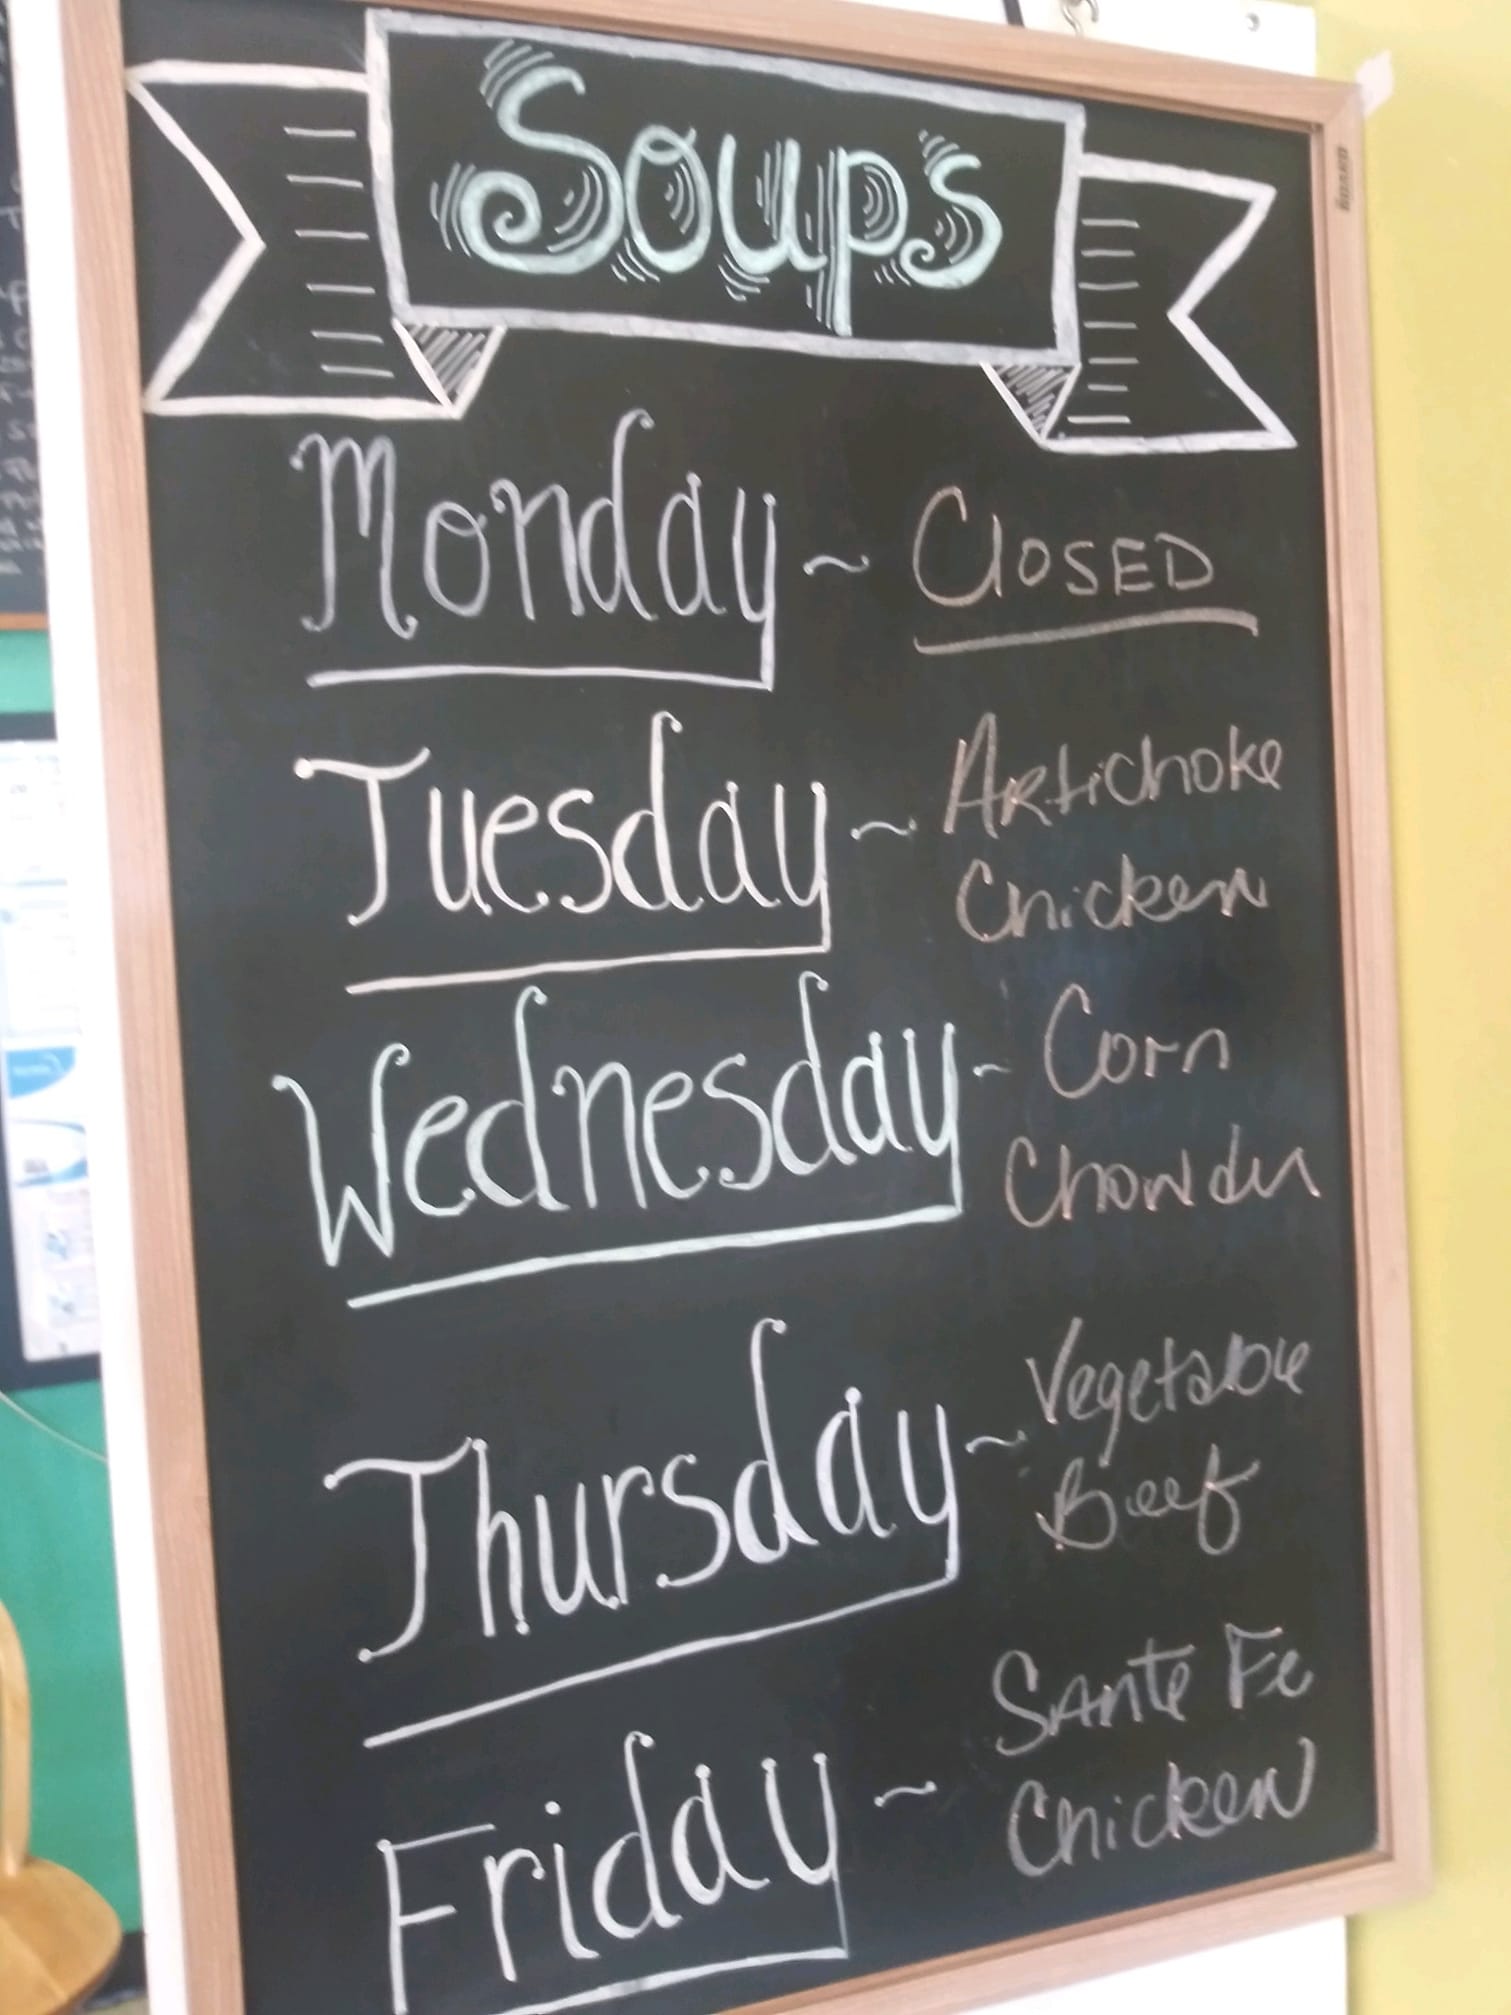 Soups
Monday ~ Closed
Tuesday ~ Artichoke
Chicken
Wednesday - Corn
Chowder
Thursday ~ Vegetable
Beef
Friday ~ Sante Fe
Chicken